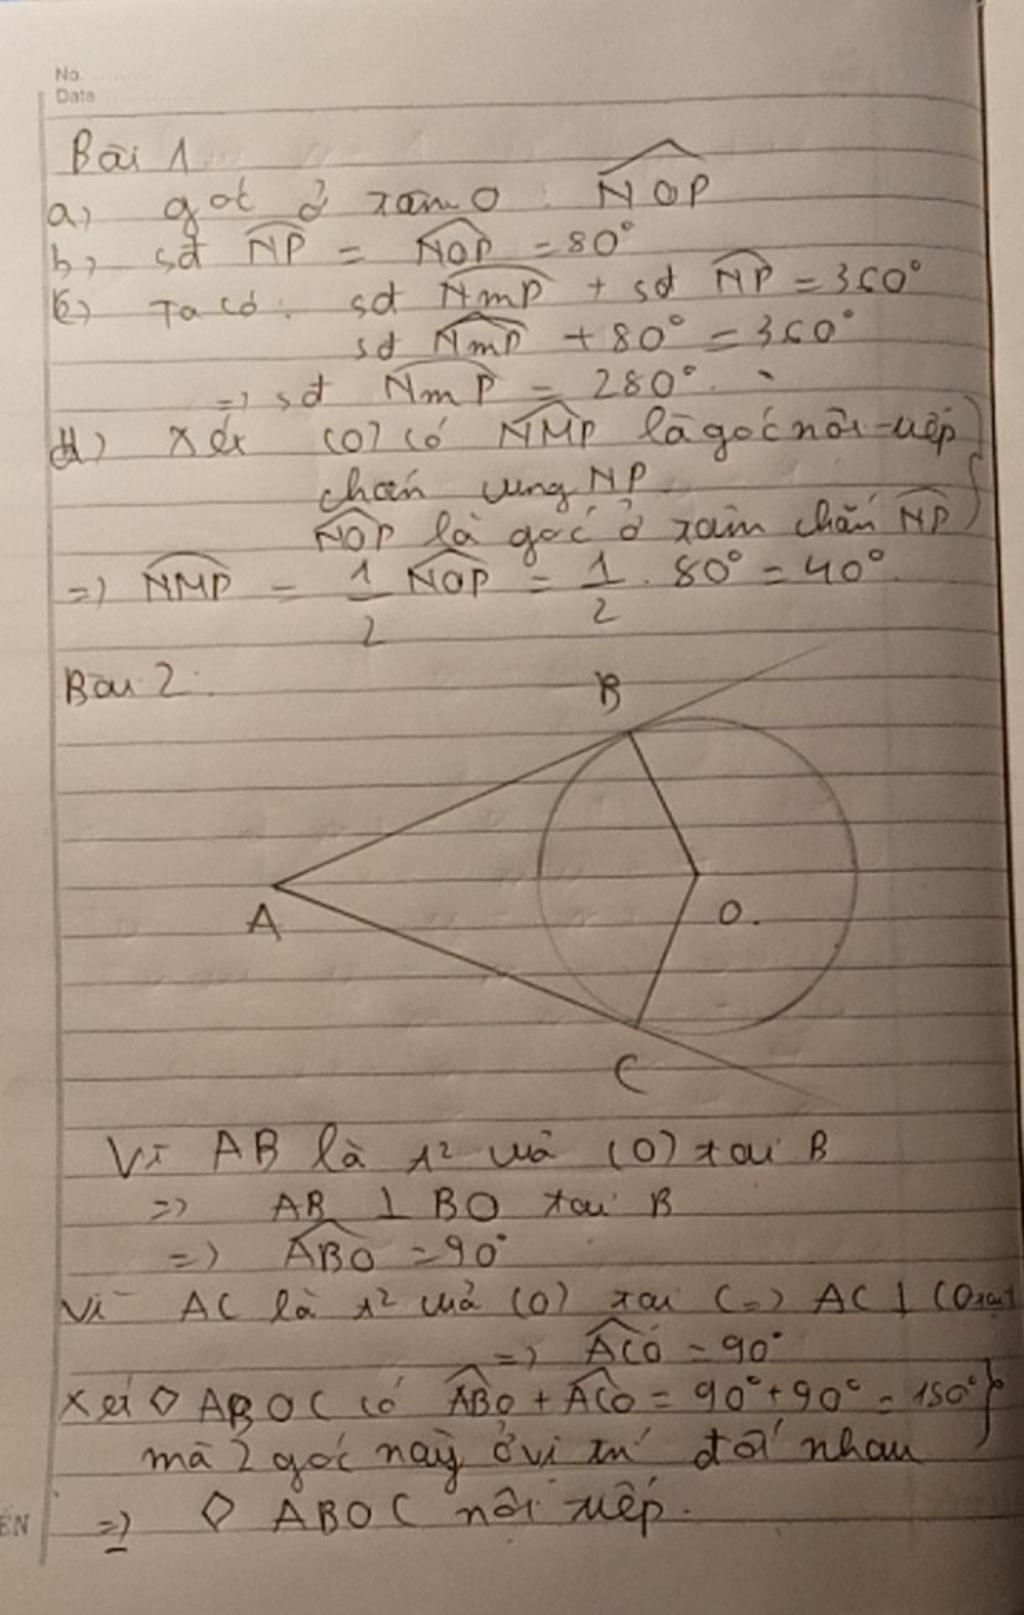 No.
Date
Bài 1
a, góc ở tâm O : NOP
b, sđ NP = NOP = 80°
c, Ta có: sđ NmP + sđ NP = 360°
sđ NmP + 80° = 360°
=> sđ NmP = 280°.
d) Xét (O) có NMP là góc nội tiếp
chắn cung NP
NOP là góc ở tâm chắn NP
=> NMP = 1/2 NOP = 1/2 . 80° = 40°.
Bài 2:
B
A
O.
C
Vì AB là t² của (O) tại B
=> AB ⊥ BO tại B
=> ABO = 90°
Vì AC là t² của (O) tại C => AC ⊥ CO tại
=> ACO = 90°
Xét ◇ ABOC có ABO + ACO = 90° + 90° = 180°
mà 2 góc này ở vị trí đối nhau
=> ◇ ABOC nội tiếp.